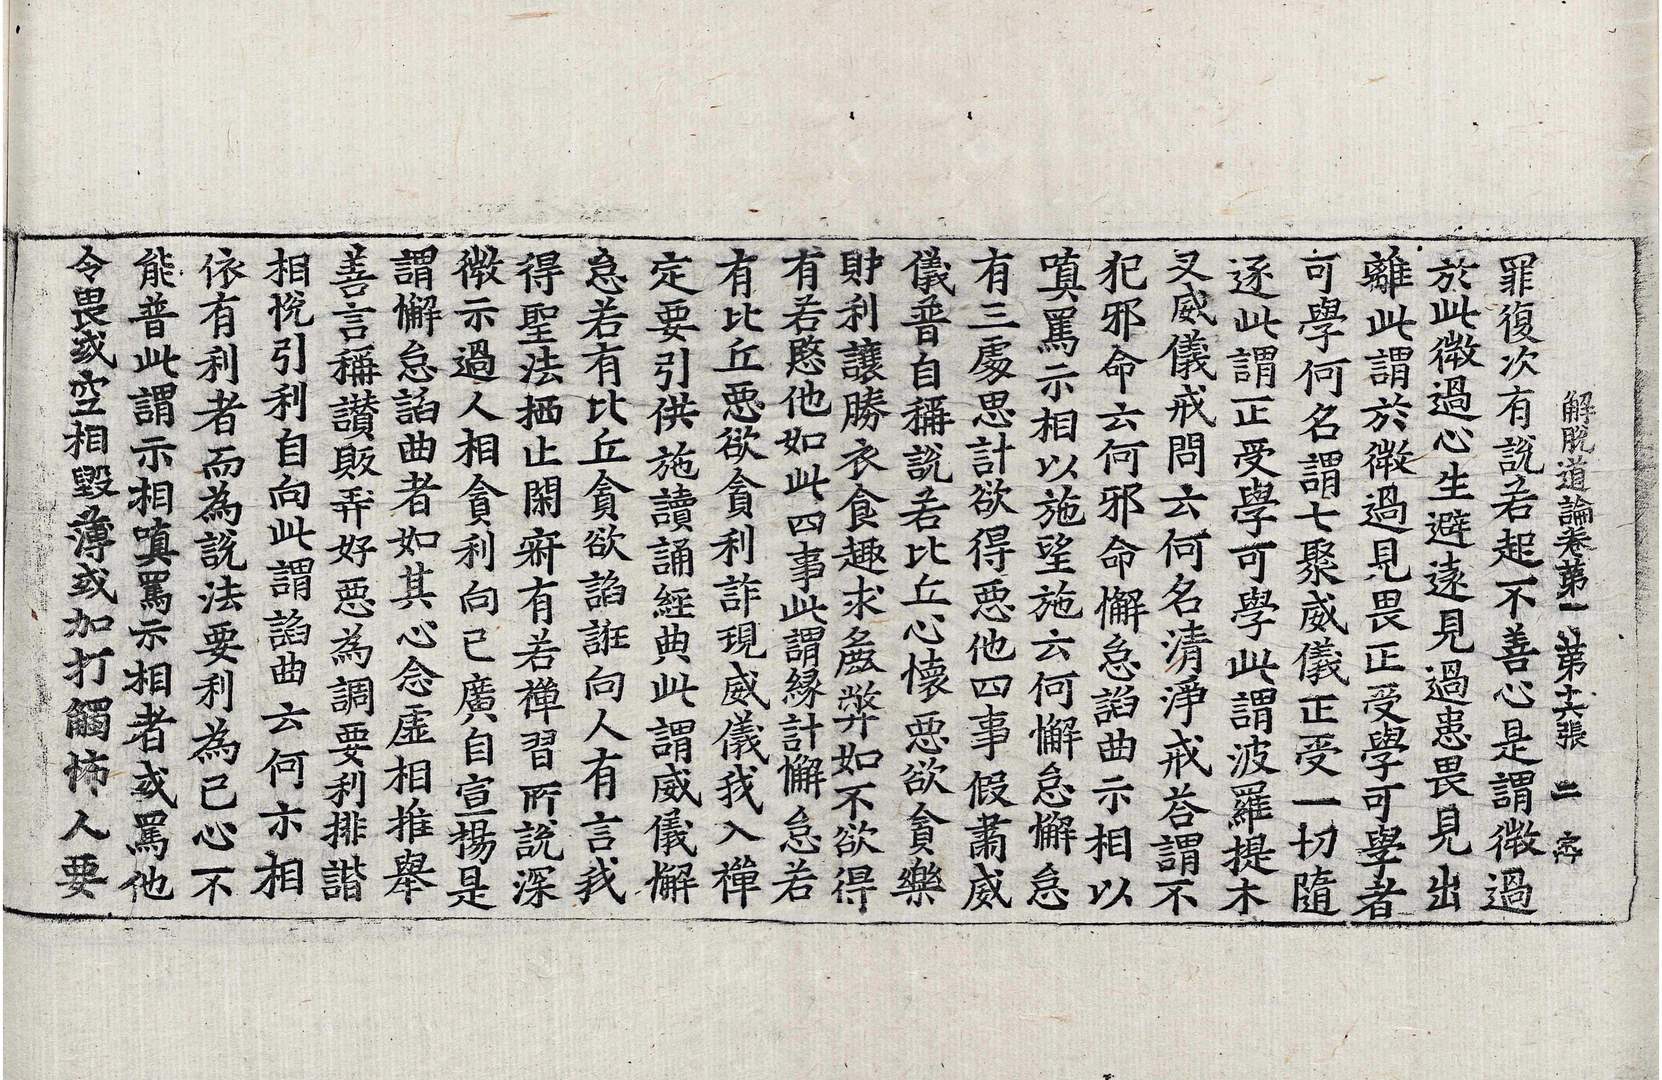 解脫道論卷第一 第十六張 二 㤙
罪復次有說若起不善心是謂微過
於此微過心生避遠見過患畏見出
離此謂於微過見畏正受學可學者
可學何名謂七聚威儀正受一切隨
逐此謂正受學可學此謂波羅提木
叉威儀戒問云何名清淨戒荅謂不
犯邪命云何邪命懈怠諂曲示相以
嗔罵示相以施望施云何懈怠懈怠
有三處思計欲得惡他四事假肅威
儀普自稱說若比丘心懷惡欲貪樂
財利讓勝衣食趣求麁弊如不欲得
有若愍他如此四事此謂緣計懈怠若
有比丘惡欲貪利詐現威儀我入禪
定要引供施讀誦經典此謂威儀懈
怠若有比丘貪欲諂誑向人有言我
得聖法栖止閑寂有若禪習所說深
微示過人相貪利向已廣自宣揚是
謂懈怠諂曲者如其心念虛相推舉
善言稱讃販弄好惡為調要利排諧
相悅引利自向此謂諂曲云何示相
依有利者而為說法要利為已心不
能普此謂示相嗔罵示相者或罵他
令畏或空相毀薄或加打觸怖人要